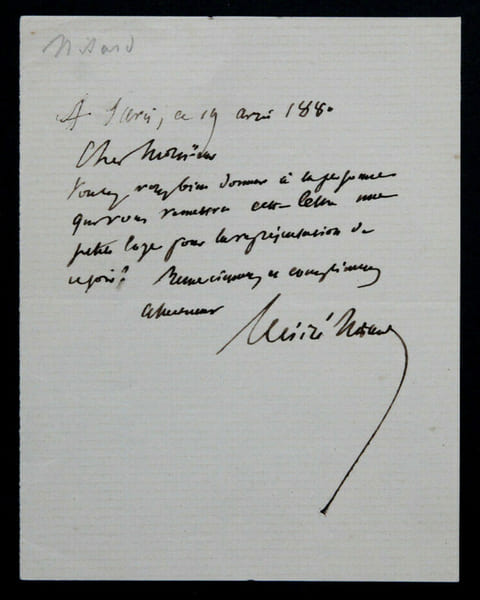 Nisard
A Paris, ce 19 avril 1880
Cher Monsieur
Voulez vous bien donner à la personne
qui vous remettra cette lettre une
petite loge pour la représentation de
ce soir? Remerciemens et complimens
affectueux
Désiré Nisard